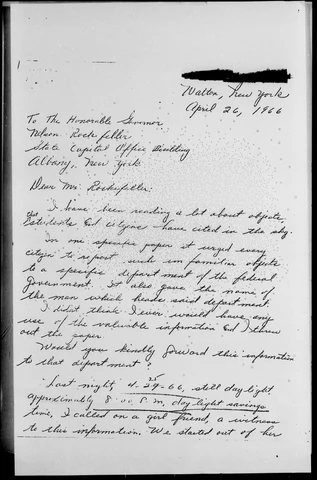 Walton, New York
April 26, 1966
To The Honorable Govenor
Nelson Rockefeller
State Capital Office Building
Albany, New York
Dear Mr. Rockefeller:
I have been reading a lot about objects,
that students and citizens have cited in the sky.
In one specific paper it urged every
citizen to report such unfamiliar objects
to a specific department of the federal
government. It also gave the name of
the man which heads said department.
I didn't think I ever would have any
use of the valuable information and I threw
out the paper.
Would you kindly forward this information
to that department?
Last night, 4-25-66, still day light
approximately 8:00 P.m, day light savings
time, I called on a girl friend, a witness
to this information. We started out of her